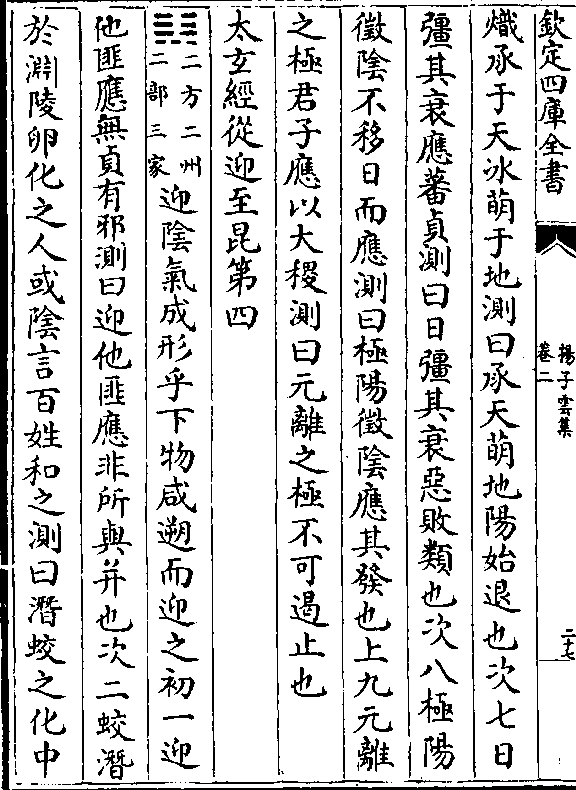 欽定四庫全書
揚子雲集
卷二
二十七
熾承于天冰萌于地測曰承天萌地陽始退也次七日
彊其衰應蕃貞測曰日彊其衰惡敗類也次八極陽
徵陰不移日而應測曰極陽徵陰應其發也上九元離
之極君子應以大稷測曰元離之極不可遏止也
太玄經從迎至昆第四
二方二州
二部三家
迎陰氣成形乎下物咸遡而迎之初一迎
他匪應無貞有邪測曰迎他匪應非所與并也次二蛟潛
於淵陵卵化之人或陰言百姓和之測曰潛蛟之化中